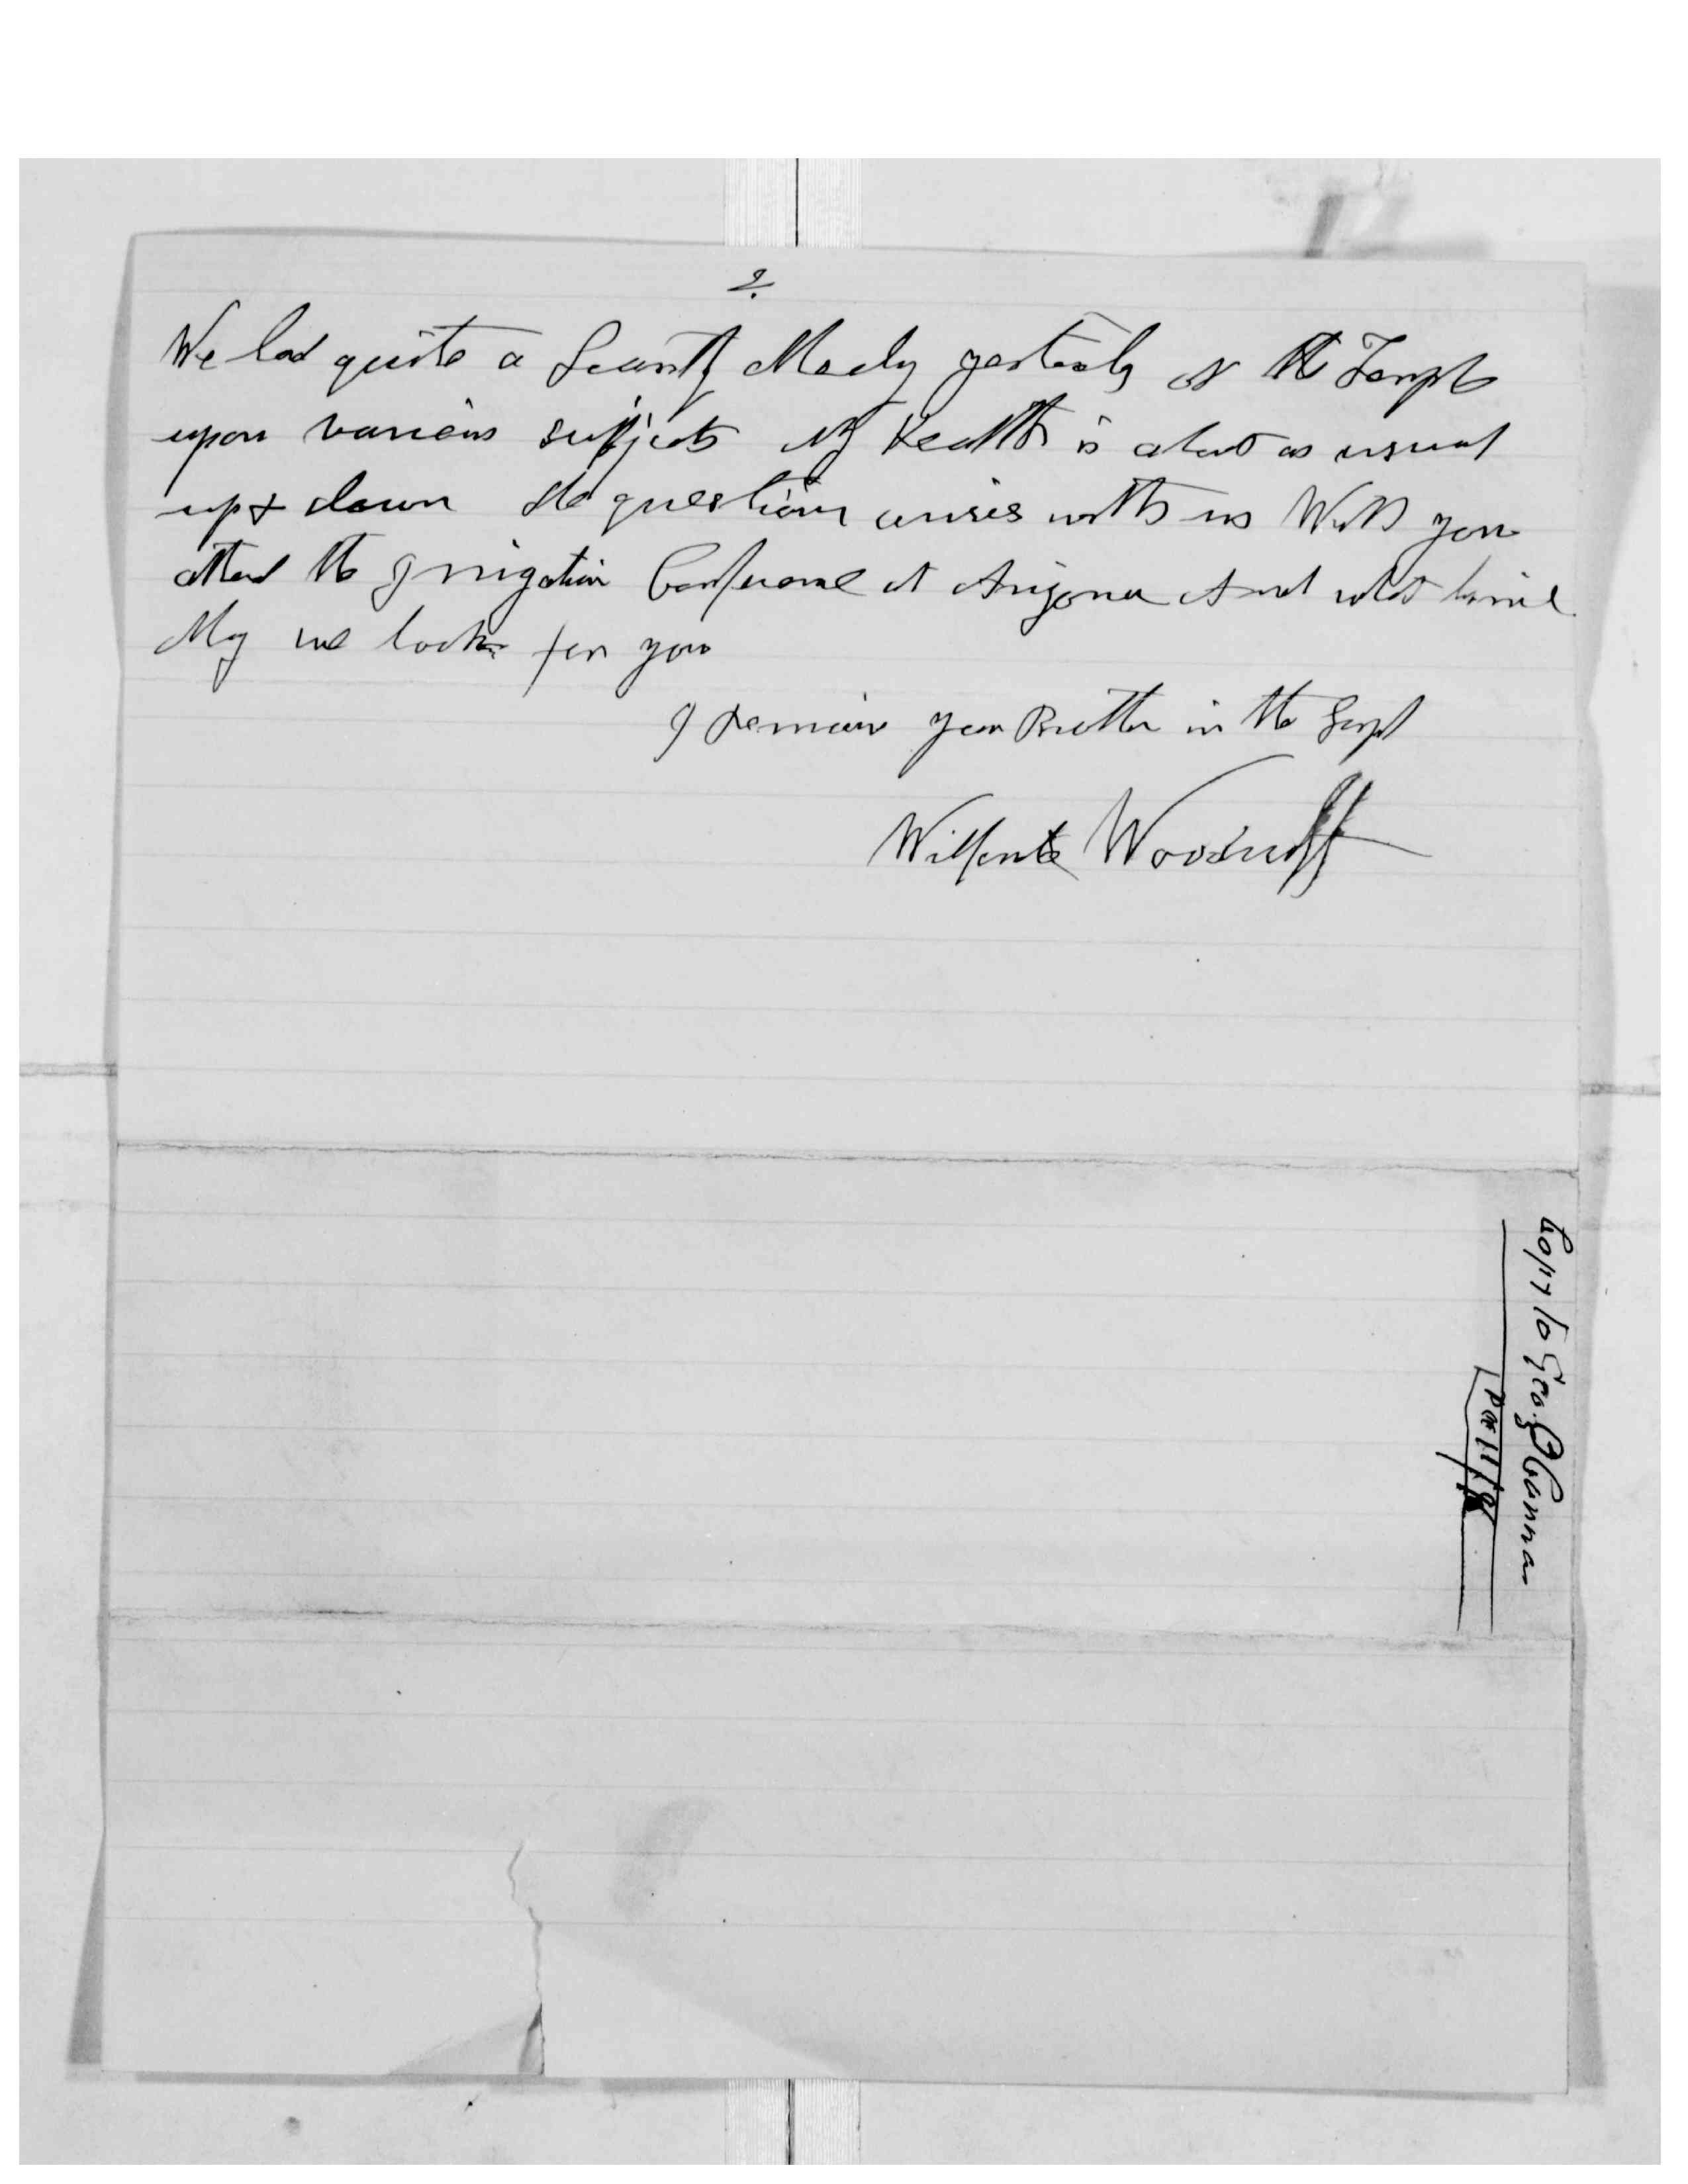 2.
We had quite a Lengthy Meeting yesterday at the Temple
upon various subjects My Health is about as usual
up & down the question arises with us Will you
attend the Irrigation Conference at Arizona And what time
May we look for you
I remain your Brother in the Gospel
Wilford Woodruff
Copy to Geo. Q Cannon